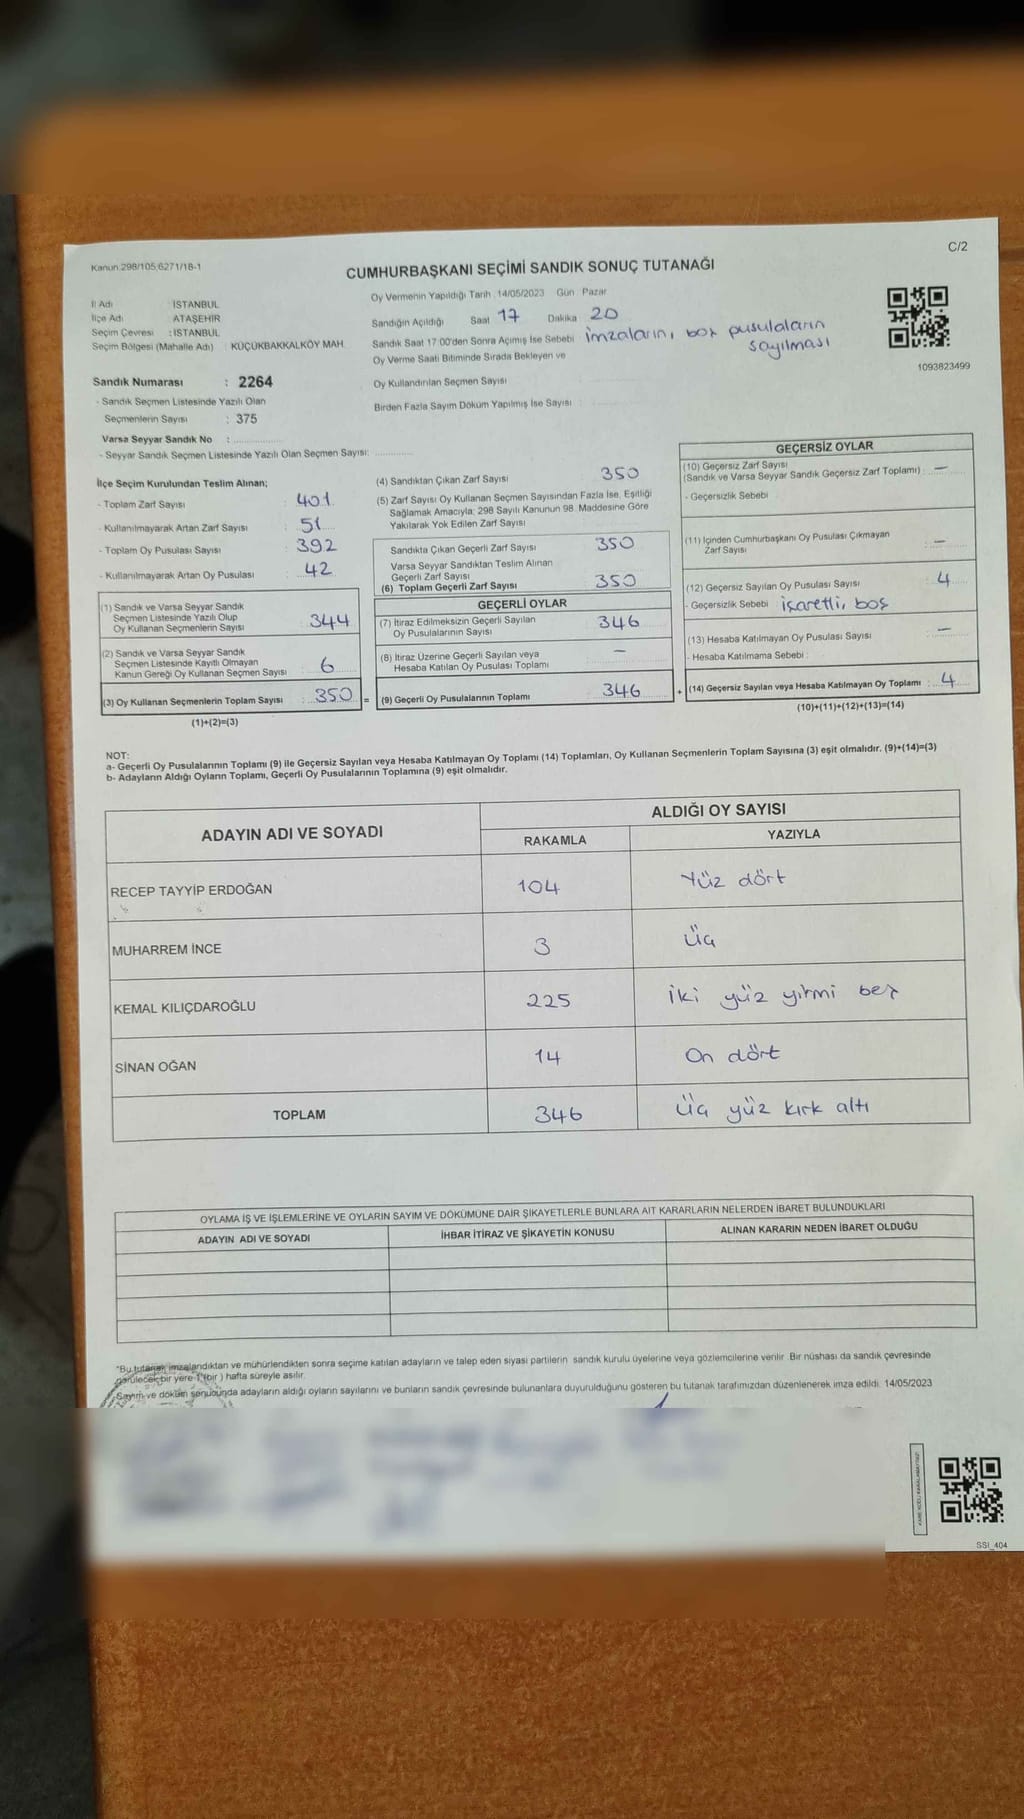 C/2
Kanun:298/105,6271/18-1
CUMHURBAŞKANI SEÇİMİ SANDIK SONUÇ TUTANAĞI
İl Adı : İSTANBUL
İlçe Adı : ATAŞEHİR
Seçim Çevresi : İSTANBUL
Seçim Bölgesi (Mahalle Adı) : KÜÇÜKBAKKALKÖY MAH.
Oy Vermenin Yapıldığı Tarih :14/05/2023 Gün : Pazar
Sandığın Açıldığı Saat 17 Dakika 20
Sandık Saat 17:00'den Sonra Açımış İse Sebebi imzaların, boş pusulaların
sayılması
Oy Verme Saati Bitiminde Sırada Bekleyen ve
Oy Kullandırılan Seçmen Sayısı
Birden Fazla Sayım Döküm Yapılmış İse Sayısı :
1093823499
Sandık Numarası : 2264
- Sandık Seçmen Listesinde Yazılı Olan
Seçmenlerin Sayısı : 375
Varsa Seyyar Sandık No :
- Seyyar Sandık Seçmen Listesinde Yazılı Olan Seçmen Sayısı:
İlçe Seçim Kurulundan Teslim Alınan;
- Toplam Zarf Sayısı : 401
- Kullanılmayarak Artan Zarf Sayısı : 51
- Toplam Oy Pusulası Sayısı : 392
- Kullanılmayarak Artan Oy Pusulası : 42
(1) Sandık ve Varsa Seyyar Sandık
Seçmen Listesinde Yazılı Olup
Oy Kullanan Seçmenlerin Sayısı 344
(2) Sandık ve Varsa Seyyar Sandık
Seçmen Listesinde Kayıtlı Olmayan
Kanun Gereği Oy Kullanan Seçmen Sayısı 6
(3) Oy Kullanan Seçmenlerin Toplam Sayısı : 350 =
(1)+(2)=(3)
(4) Sandıktan Çıkan Zarf Sayısı 350
(5) Zarf Sayısı Oy Kullanan Seçmen Sayısından Fazla İse, Eşitliği
Sağlamak Amacıyla; 298 Sayılı Kanunun 98. Maddesine Göre
Yakılarak Yok Edilen Zarf Sayısı
Sandıkta Çıkan Geçerli Zarf Sayısı 350
Varsa Seyyar Sandıktan Teslim Alınan
Geçerli Zarf Sayısı
(6) Toplam Geçerli Zarf Sayısı 350
GEÇERLİ OYLAR
(7) İtiraz Edilmeksizin Geçerli Sayılan
Oy Pusulalarının Sayısı 346
(8) İtiraz Üzerine Geçerli Sayılan veya
Hesaba Katılan Oy Pusulası Toplamı –
(9) Geçerli Oy Pusulalarının Toplamı 346 +
GEÇERSİZ OYLAR
(10) Geçersiz Zarf Sayısı
(Sandık ve Varsa Seyyar Sandık Geçersiz Zarf Toplamı) : –
- Geçersizlik Sebebi
(11) İçinden Cumhurbaşkanı Oy Pusulası Çıkmayan
Zarf Sayısı –
(12) Geçersiz Sayılan Oy Pusulası Sayısı 4
- Geçersizlik Sebebi işaretli, boş
(13) Hesaba Katılmayan Oy Pusulası Sayısı –
- Hesaba Katılmama Sebebi :
(14) Geçersiz Sayılan veya Hesaba Katılmayan Oy Toplamı : 4
(10)+(11)+(12)+(13)=(14)
NOT:
a- Geçerli Oy Pusulalarının Toplamı (9) ile Geçersiz Sayılan veya Hesaba Katılmayan Oy Toplamı (14) Toplamları, Oy Kullanan Seçmenlerin Toplam Sayısına (3) eşit olmalıdır. (9)+(14)=(3)
b- Adayların Aldığı Oyların Toplamı, Geçerli Oy Pusulalarının Toplamına (9) eşit olmalıdır.
ADAYIN ADI VE SOYADI ALDIĞI OY SAYISI
RAKAMLA YAZIYLA
RECEP TAYYİP ERDOĞAN 104 Yüz dört
MUHARREM İNCE 3 Üç
KEMAL KILIÇDAROĞLU 225 İki yüz yirmi beş
SİNAN OĞAN 14 On dört
TOPLAM 346 Üç yüz kırk altı
OYLAMA İŞ VE İŞLEMLERİNE VE OYLARIN SAYIM VE DÖKÜMÜNE DAİR ŞİKAYETLERLE BUNLARA AİT KARARLARIN NELERDEN İBARET BULUNDUKLARI
ADAYIN ADI VE SOYADI İHBAR İTİRAZ VE ŞİKAYETİN KONUSU ALINAN KARARIN NEDEN İBARET OLDUĞU
*Bu tutanak imzalandıktan ve mühürlendikten sonra seçime katılan adayların ve talep eden siyasi partilerin sandık kurulu üyelerine veya gözlemcilerine verilir. Bir nüshası da sandık çevresinde
görülecek bir yere 1 (bir ) hafta süreyle asılır.
Sayım ve döküm sonucunda adayların aldığı oyların sayılarını ve bunların sandık çevresinde bulunanlara duyurulduğunu gösteren bu tutanak tarafımızdan düzenlenerek imza edildi. 14/05/2023
SSI_404